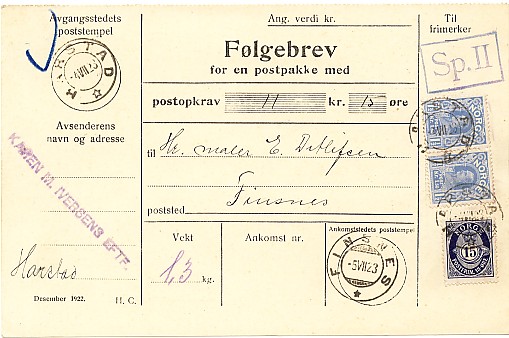 Avgangsstedets
poststempel
HARSTAD
-4VII23
Avsenderens
navn og adresse
KAREN M. IVERSENS EFTF.
Harstad
Desember 1922. H. C.
Ang. verdi kr.
Følgebrev
for en postpakke med
postopkrav 11 kr. 15 øre
til Hr. maler E. Ditlefsen
Finsnes
poststed
Vekt
1,3 kg.
Ankomst nr.
Ankomststedets poststempel
FINSNES
-5VII23
Til
frimerker
Sp. II
NORGE
NORGE
NORGE
15